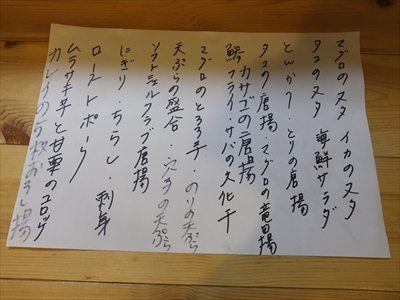 マグロのヌタ イカのヌタ
タコのヌタ 海鮮サラダ
とんかつ・とりの唐揚
タコの唐揚・マグロの竜田揚
カサゴの二度揚
鯵フライ・サバの文化干
マグロのとろろ芋・のりの天ぷら
天ぷらの盛合・穴子の天ぷら
ソフトシェルクラブ唐揚
にぎり・ちらし・刺身
ローストポーク
ムラサキ芋と甘栗のコロッケ
カレイの二枚おろし揚